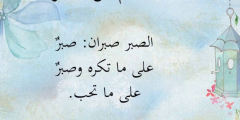 الصبر صبران: صبرٌ
على ما تكره وصبرٌ
على ما تحب.